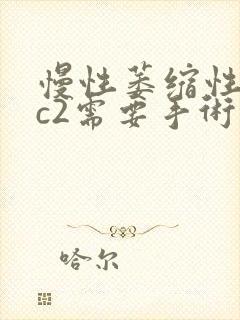 慢性萎缩性
c2需要手术
哈尔